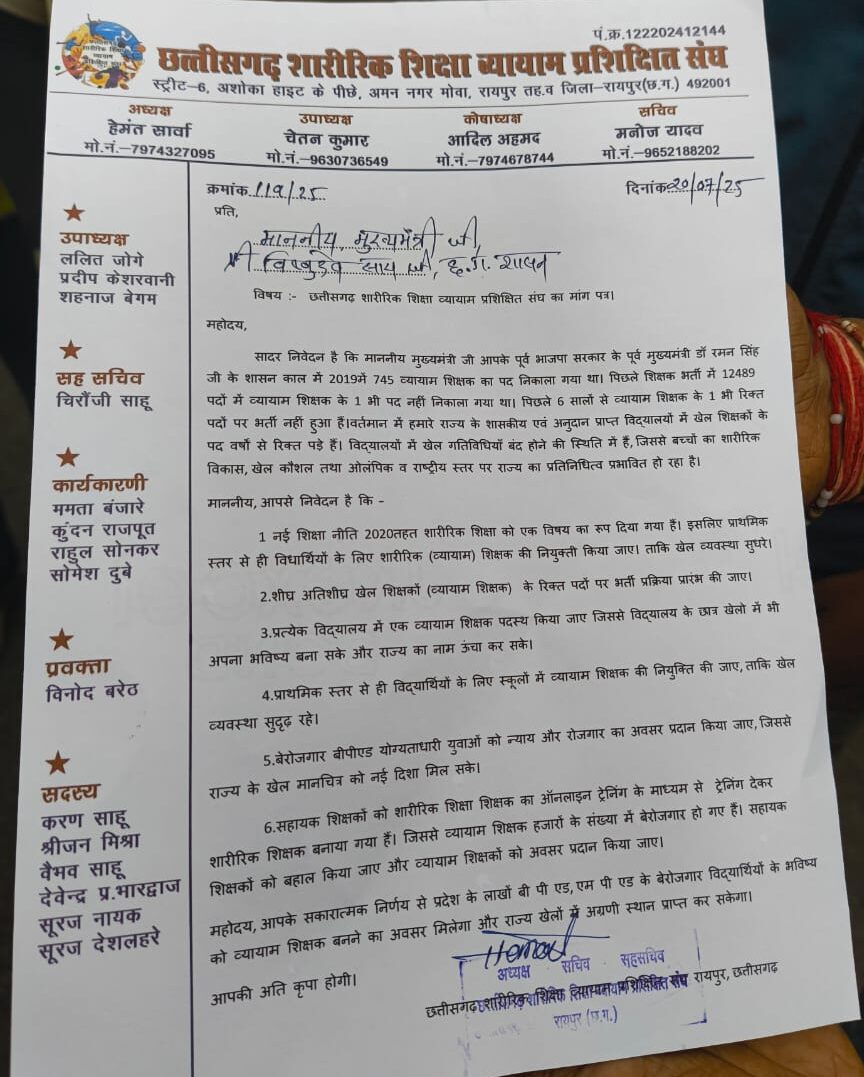 पं.क्र.122202412144
छत्तीसगढ़ शारीरिक शिक्षा व्यायाम प्रशिक्षित संघ
स्ट्रीट–6, अशोका हाइट के पीछे, अमन नगर मोवा, रायपुर तह.व जिला–रायपुर(छ.ग.) 492001
अध्यक्ष
हेमंत सार्वा
मो.नं.–7974327095
उपाध्यक्ष
चेतन कुमार
मो.नं.–9630736549
कोषाध्यक्ष
आदिल अहमद
मो.नं.–7974678744
सचिव
मनोज यादव
मो.नं.–9652188202
उपाध्यक्ष
ललित जोगे
प्रदीप केशरवानी
शहनाज बेगम
सह सचिव
चिरौंजी साहू
कार्यकारणी
ममता बंजारे
कुंदन राजपूत
राहुल सोनकर
सोमेश दुबे
प्रवक्ता
विनोद बरेठ
सदस्य
करण साहू
श्रीजन मिश्रा
वैभव साहू
देवेन्द्र प्र.भारद्वाज
सूरज नायक
सूरज देशलहरे
क्रमांक 119/25
दिनांक 20/07/25
प्रति,
माननीय, मुख्यमंत्री जी,
श्री विष्णुदेव साय जी, छ.ग. शासन
विषय :- छत्तीसगढ़ शारीरिक शिक्षा व्यायाम प्रशिक्षित संघ का मांग पत्र।
महोदय,
सादर निवेदन है कि माननीय मुख्यमंत्री जी आपके पूर्व भाजपा सरकार के पूर्व मुख्यमंत्री डॉ रमन सिंह
जी के शासन काल में 2019में 745 व्यायाम शिक्षक का पद निकाला गया था। पिछले शिक्षक भर्ती में 12489
पदों में व्यायाम शिक्षक के 1 भी पद नहीं निकाला गया था। पिछले 6 सालों से व्यायाम शिक्षक के 1 भी रिक्त
पदों पर भर्ती नहीं हुआ हैं।वर्तमान में हमारे राज्य के शासकीय एवं अनुदान प्राप्त विद्यालयों में खेल शिक्षकों के
पद वर्षो से रिक्त पड़े हैं। विद्यालयों में खेल गतिविधियाँ बंद होने की स्थिति में हैं,जिससे बच्चों का शारीरिक
विकास, खेल कौशल तथा ओलंपिक व राष्ट्रीय स्तर पर राज्य का प्रतिनिधित्व प्रभावित हो रहा है।
माननीय, आपसे निवेदन है कि -
1 नई शिक्षा नीति 2020तहत शारीरिक शिक्षा को एक विषय का रुप दिया गया हैं। इसलिए प्राथमिक
स्तर से ही विधार्थियों के लिए शारीरिक (व्यायाम) शिक्षक की नियुक्ती किया जाए। ताकि खेल व्यवस्था सुधरे।
2.शीघ्र अतिशीघ्र खेल शिक्षकों (व्यायाम शिक्षक) के रिक्त पदों पर भर्ती प्रक्रिया प्रारंभ की जाए।
3.प्रत्येक विद्यालय में एक व्यायाम शिक्षक पदस्थ किया जाए जिससे विद्यालय के छात्र खेलो में भी
अपना भविष्य बना सके और राज्य का नाम ऊंचा कर सके।
4.प्राथमिक स्तर से ही विद्यार्थियों के लिए स्कूलों में व्यायाम शिक्षक की नियुक्ति की जाए, ताकि खेल
व्यवस्था सुदृढ़ रहे।
5.बेरोजगार बीपीएड योग्यताधारी युवाओं को न्याय और रोजगार का अवसर प्रदान किया जाए, जिससे
राज्य के खेल मानचित्र को नई दिशा मिल सके।
6.सहायक शिक्षकों को शारीरिक शिक्षा शिक्षक का ऑनलाइन ट्रेनिंग के माध्यम से ट्रेनिंग देकर
शारीरिक शिक्षक बनाया गया हैं। जिससे व्यायाम शिक्षक हजारों के संख्या में बेरोजगार हो गए हैं। सहायक
शिक्षकों को बहाल किया जाए और व्यायाम शिक्षकों को अवसर प्रदान किया जाए।
महोदय, आपके सकारात्मक निर्णय से प्रदेश के लाखों बी पी एड,एम पी एड के बेरोजगार विद्यार्थियों के भविष्य
को व्यायाम शिक्षक बनने का अवसर मिलेगा और राज्य खेलों में अग्रणी स्थान प्राप्त कर सकेगा।
आपकी अति कृपा होगी।
अध्यक्ष सचिव सहसचिव
छत्तीसगढ़ शारीरिक शिक्षा व्यायाम प्रशिक्षित संघ रायपुर, छत्तीसगढ़
रायपुर (छ.ग.)